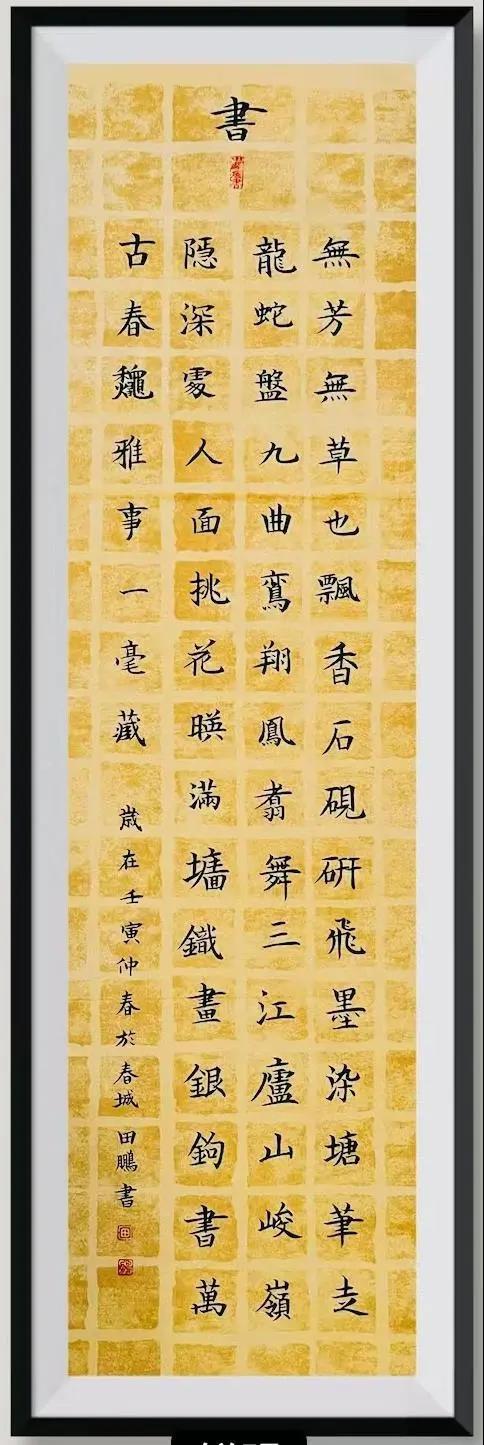 書
無芳無草也飄香石硯研飛墨染塘筆走
龍蛇盤九曲鸞翔鳳翥舞三江廬山峻嶺
隱深處人面挑花暎滿墻鐵畫銀鉤書萬
古春龝雅事一毫藏
歲在壬寅仲春於春城田鵬書
田